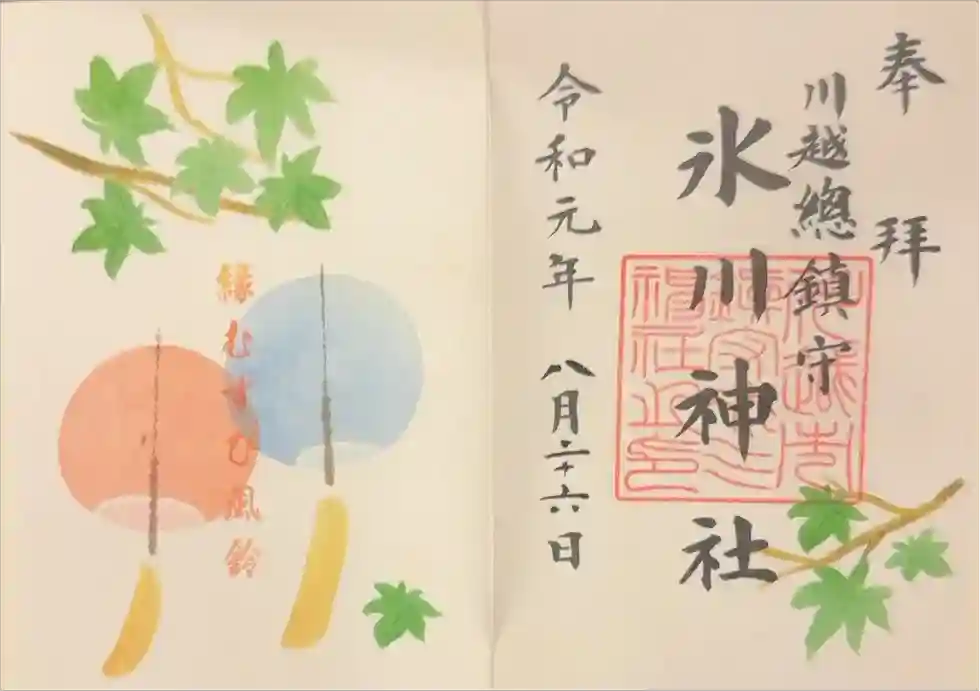 奉拝
川越總鎮守
氷川神社
令和元年 八月二十六日
縁むすび風鈴